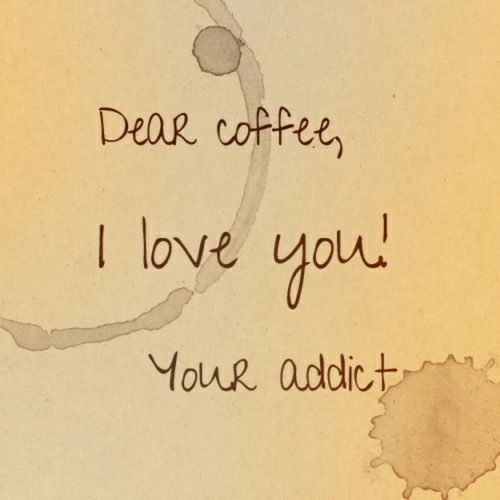 Dear coffee,
I love you!
Your addict